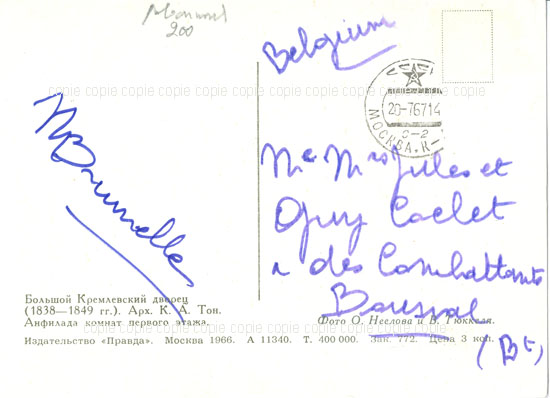 200
Belgium
20-7-67 14
МОСКВА. К-
С-2
M Brunelle
Mr Mrs Jules et
Guy Coelet
r des Combattants
Bousval
(Bt)
Большой Кремлевский дворец
(1838—1849 гг.). Арх. К. А. Тон.
Анфилада комнат первого этажа.
Фото О. Неелова и В. Гюккеля.
Издательство «Правда». Москва 1966. А 11340. Т. 400 000. Зак. 772. Цена 3 коп.
copie copie copie copie copie copie copie copie copie copie copie copie
copie copie copie copie copie copie copie copie copie copie copie copie
copie copie copie copie copie copie copie copie copie copie copie copie